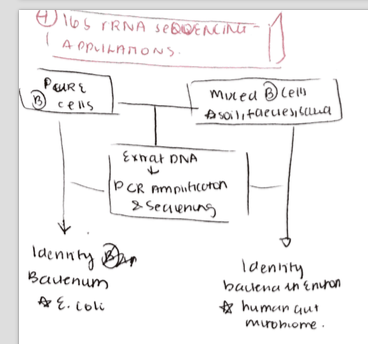 ④ 16S rRNA SEQUENCING -
APPLICATIONS.
PURE
Ⓑ cells
Mixed Ⓑ cells
☆soil, faeces, sand
Extrat DNA
↓
PCR Amplification
& sequencing
Identity
Bacterium
☆ E. coli
Identity
bacteria in Environ
☆ human gut
microbiome.